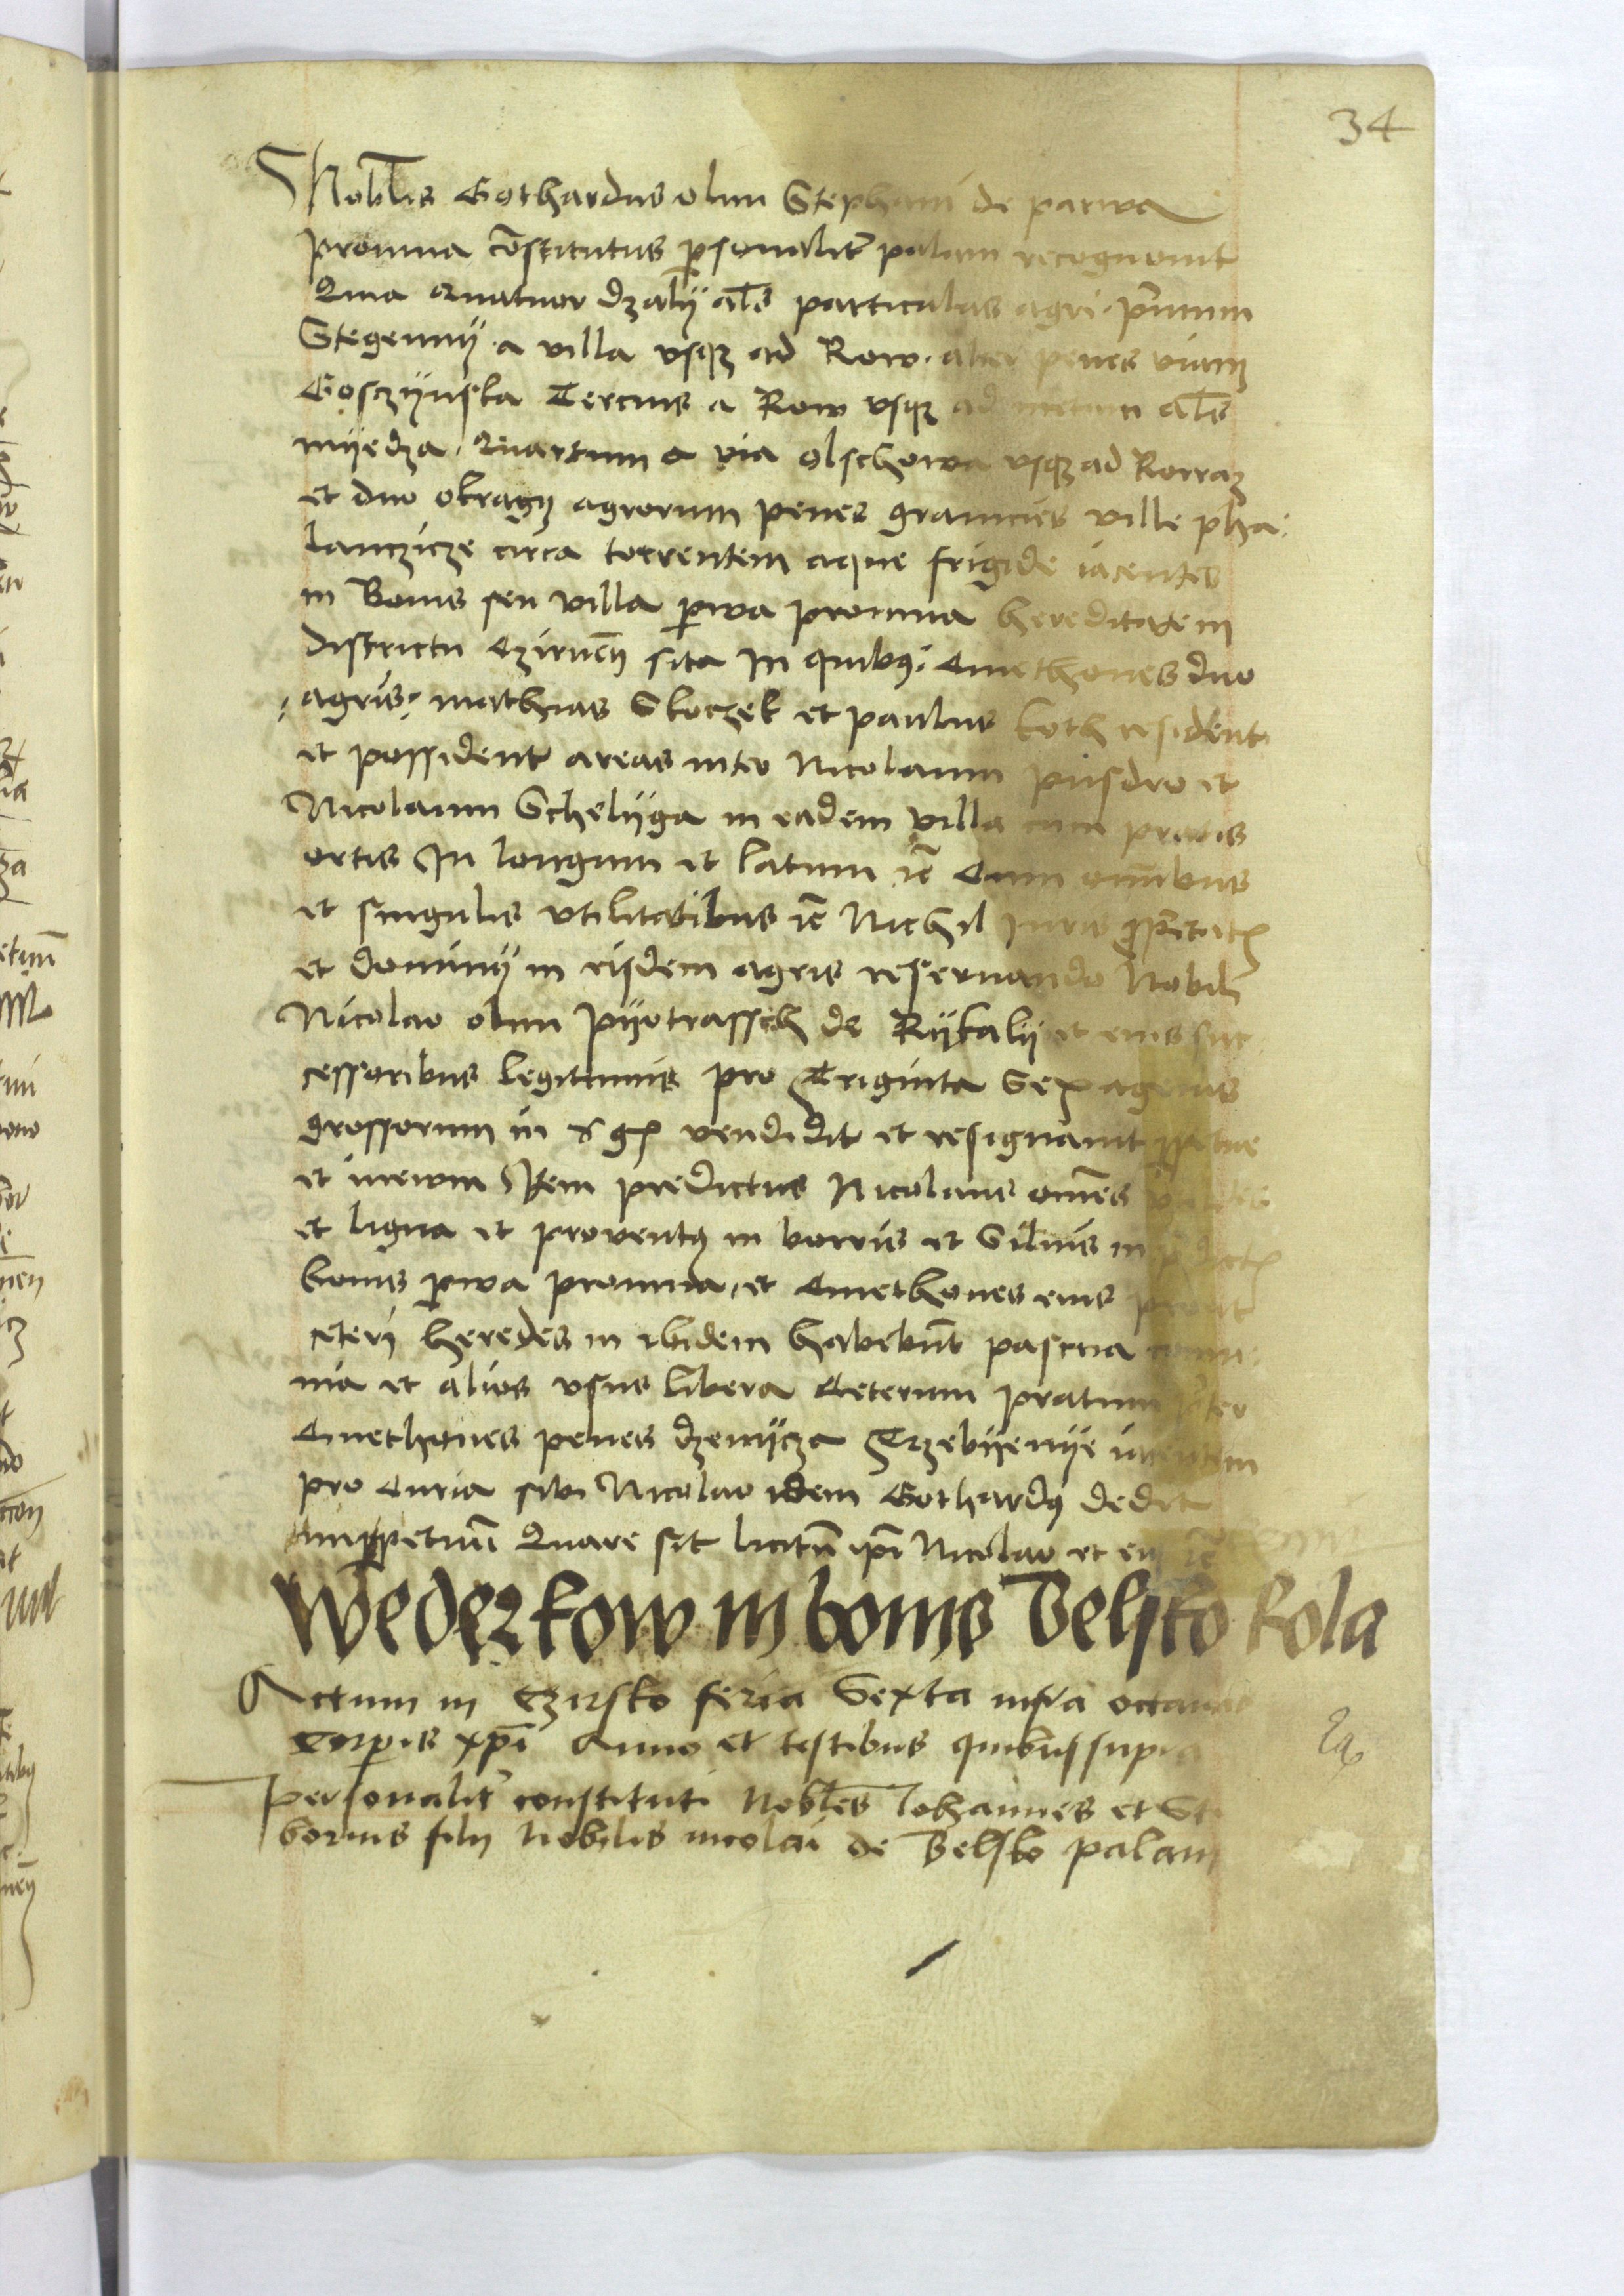 34
Nobilis Gothardus olim Stephani de parwa
promna constitutus personaliter palam recognovit
Quia Quatuor dzaly als particulas agri primum
Stegenny a villa usque ad Row alter penes viam
Goszynska Tercius a Row usque ad metam als
myedza Quartum a via olschowa usque ad Rorraz
et duo okragy agrorum penes granicies ville pha
lanczicze circa torrentem aque frigide iacentes
in Bonis seu villa parva promna hereditatem
districtu Czirnen sita In quibus Cmethones duo
agris mathias Skoczek et paulus koth resident
et possident areas inter Nicolaum pusdro et
Nicolaum Schelyga in eadem villa cum pratis
ortis In longum et latum etc Cum omnibus
et singulis utilitatibus etc Nichil Juris proprietatis
et dominy in eisdem agris reservando Nobili
Nicolao olim pyotrassch de Rykaly et eius suc
cessoribus legitimis pro Triginta Sexagenis
grossorum in gr vendidit et resignavit perpetue
et inewum Item predictus Nicolaus omnes
et ligna et proventus in borris et Silvis in predictis
bonis parva promna et Cmethones eius prout
ceteri heredes in ibidem habebunt pascua commu
nia et alios usus libera Ceterum pratum inter
Cmethones penes dzenycza Trzebyenye iacentem
pro Curia sibi Nicolao idem Gothardus dedit
imperpetuum Quare sit licitum ipsi Nicolao et eius etc
Wederkow in bonis Belsko kola
Actum in Czirsko feria Sexta infra octavas
Corporis xpi Anno et testibus quibus supra
Personaliter constituti Nobiles Johannes et Sti
borius filii Nobilis nicolai de Belsko palam